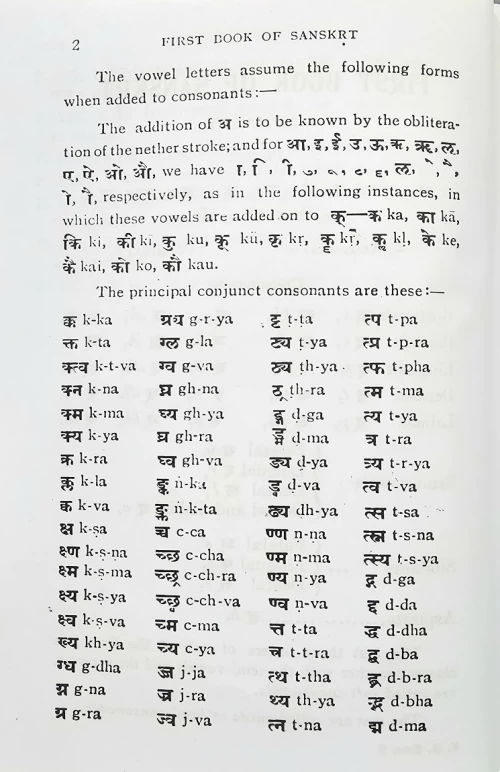 2 FIRST BOOK OF SANSKRT
The vowel letters assume the following forms
when added to consonants:—
The addition of अ is to be known by the oblitera-
tion of the nether stroke; and for आ, इ, ई, उ, ऊ, ऋ, ॠ, ऌ,
ए, ऐ, ओ, औ, we have ा, ि, ी, ु, ू, ृ, ॄ, ऌ, े, ै,
ो, ौ, respectively, as in the following instances, in
which these vowels are added on to क्—क ka, का kā,
कि ki, की kī, कु ku, कू kū, कृ kṛ, कॄ kṝ, कॢ kḷ, के ke,
कै kai, को ko, कौ kau.
The principal conjunct consonants are these:—
क्क k-ka ग्र्य g-r-ya ट्ट ṭ-ṭa त्प t-pa
क्त k-ta ग्ल g-la ट्य ṭ-ya त्प्र t-p-ra
क्त्व k-t-va ग्व g-va ठ्य ṭh-ya त्फ t-pha
क्न k-na घ्न gh-na ठ्र ṭh-ra त्म t-ma
क्म k-ma घ्य gh-ya ड्ग ḍ-ga त्य t-ya
क्य k-ya घ्र gh-ra ड्म ḍ-ma त्र t-ra
क्र k-ra घ्व gh-va ड्य ḍ-ya त्र्य t-r-ya
क्ल k-la ङ्क ṅ-ka ड्व ḍ-va त्व t-va
क्व k-va ङ्क्त ṅ-k-ta ढ्य ḍh-ya त्स t-sa
क्ष k-ṣa च्च c-ca ण्ण ṇ-ṇa त्स्न t-s-na
क्ष्ण k-ṣ-ṇa च्छ c-cha ण्म ṇ-ma त्स्य t-s-ya
क्ष्म k-ṣ-ma च्छ्र c-ch-ra ण्य ṇ-ya द्ग d-ga
क्ष्य k-ṣ-ya च्छ्व c-ch-va ण्व ṇ-va द्द d-da
क्ष्व k-ṣ-va च्म c-ma त्त t-ta द्ध d-dha
ख्य kh-ya च्य c-ya त्त्र t-t-ra द्ब d-ba
ग्ध g-dha ज्ज j-ja त्थ t-tha द्ब्र d-b-ra
ग्न g-na ज्र j-ra थ्य th-ya द्भ d-bha
ग्र g-ra ज्व j-va त्न t-na द्म d-ma